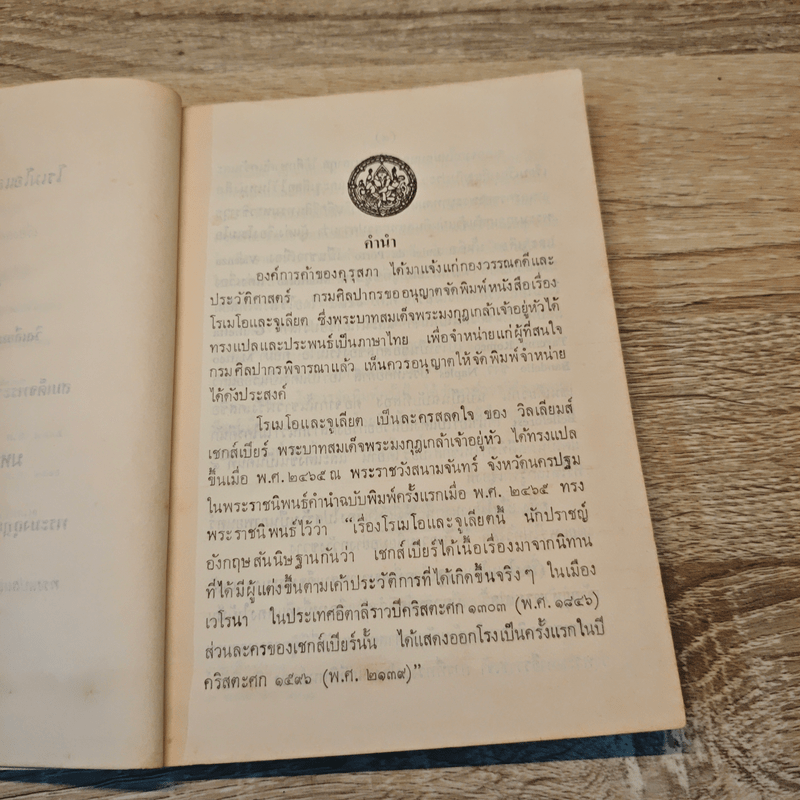 คำนำ
องค์การค้าของคุรุสภา ได้มาแจ้งแก่กองวรรณคดีและ
ประวัติศาสตร์ กรมศิลปากรขออนุญาตจัดพิมพ์หนังสือเรื่อง
โรเมโอและจูเลียต ซึ่งพระบาทสมเด็จพระมงกุฎเกล้าเจ้าอยู่หัวได้
ทรงแปลและประพนธ์เป็นภาษาไทย เพื่อจำหน่ายแก่ผู้ที่สนใจ
กรมศิลปากรพิจารณาแล้ว เห็นควรอนุญาตให้จัดพิมพ์จำหน่าย
ได้ดังประสงค์
โรเมโอและจูเลียต เป็นละครสลดใจ ของ วิลเลียมส์
เชกส์เบียร์ พระบาทสมเด็จพระมงกุฎเกล้าเจ้าอยู่หัว ได้ทรงแปล
ขึ้นเมื่อ พ.ศ. ๒๔๖๕ ณ พระราชวังสนามจันทร์ จังหวัดนครปฐม
ในพระราชนิพนธ์คำนำฉบับพิมพ์ครั้งแรกเมื่อ พ.ศ. ๒๔๖๕ ทรง
พระราชนิพนธ์ไว้ว่า “เรื่องโรเมโอและจูเลียตนี้ นักปราชญ์
อังกฤษสันนิษฐานกันว่า เชกส์เบียร์ได้เนื้อเรื่องมาจากนิทาน
ที่ได้มีผู้แต่งขึ้นตามเค้าประวัติการที่ได้เกิดขึ้นจริงๆ ในเมือง
เวโรนา ในประเทศอิตาลีราวปีคริสตะศก ๑๓๐๓ (พ.ศ. ๑๘๔๖)
ส่วนละครของเชกส์เบียร์นั้น ได้แสดงออกโรงเป็นครั้งแรกในปี
คริสตะศก ๑๕๙๖ (พ.ศ. ๒๑๓๙)”